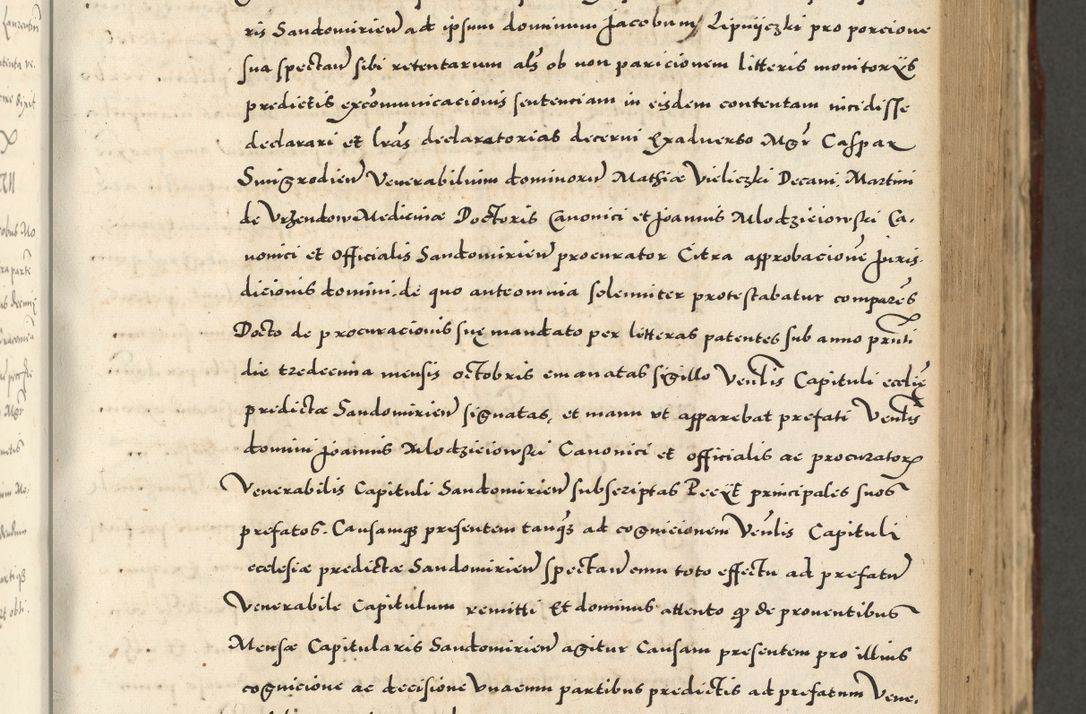 ris Sandomirien ad ipsum dominum Jacobum Lipniczki pro porcione
sua spectan sibi retentarum als ob non paricionem litteris monitoriis
predictis excomunicacionis sentenciam in eisdem contentam incidisse
declarari et lras declaratorias decerni Exadverso Mgr Caspar
Smigrodien Venerabilium dominoru Mathiæ Vieliczki Decani, Martini
de Vrzendow Medicinæ Doctoris Canonici et Joannis Mlodzieiowski Ca-
nonici et Officialis Sandomirien procurator Citra approbacione Juris-
dicionis domini, de quo anteomnia solemniter protestabatur compares
Docto de procuracionis suę mandato per litteras patentes sub anno prnti
die tredecima mensis octobris emanatas sigillo Venlis Capituli ecclię
predictæ Sandomirien signatas, et manu ut apparebat prefati Venlis
domini Joannis Mlodzieiowski Canonici et officialis ac procurator
Venerabilis Capituli Sandomirien subscriptas principales suos
prefatos. Causamq presentem tanqs ad cognicionem Venlis Capituli
ecclesiæ predictæ Sandomirien spectan cum toto effectu ad prefatu
Venerabile Capitulum remitti Et dominus attento q de proventibus
Mensæ Capitularis Sandomirien agitur Causam presentem pro illius
cognicione ac decisione Vnacum partibus predictis ad prefatum Vene-